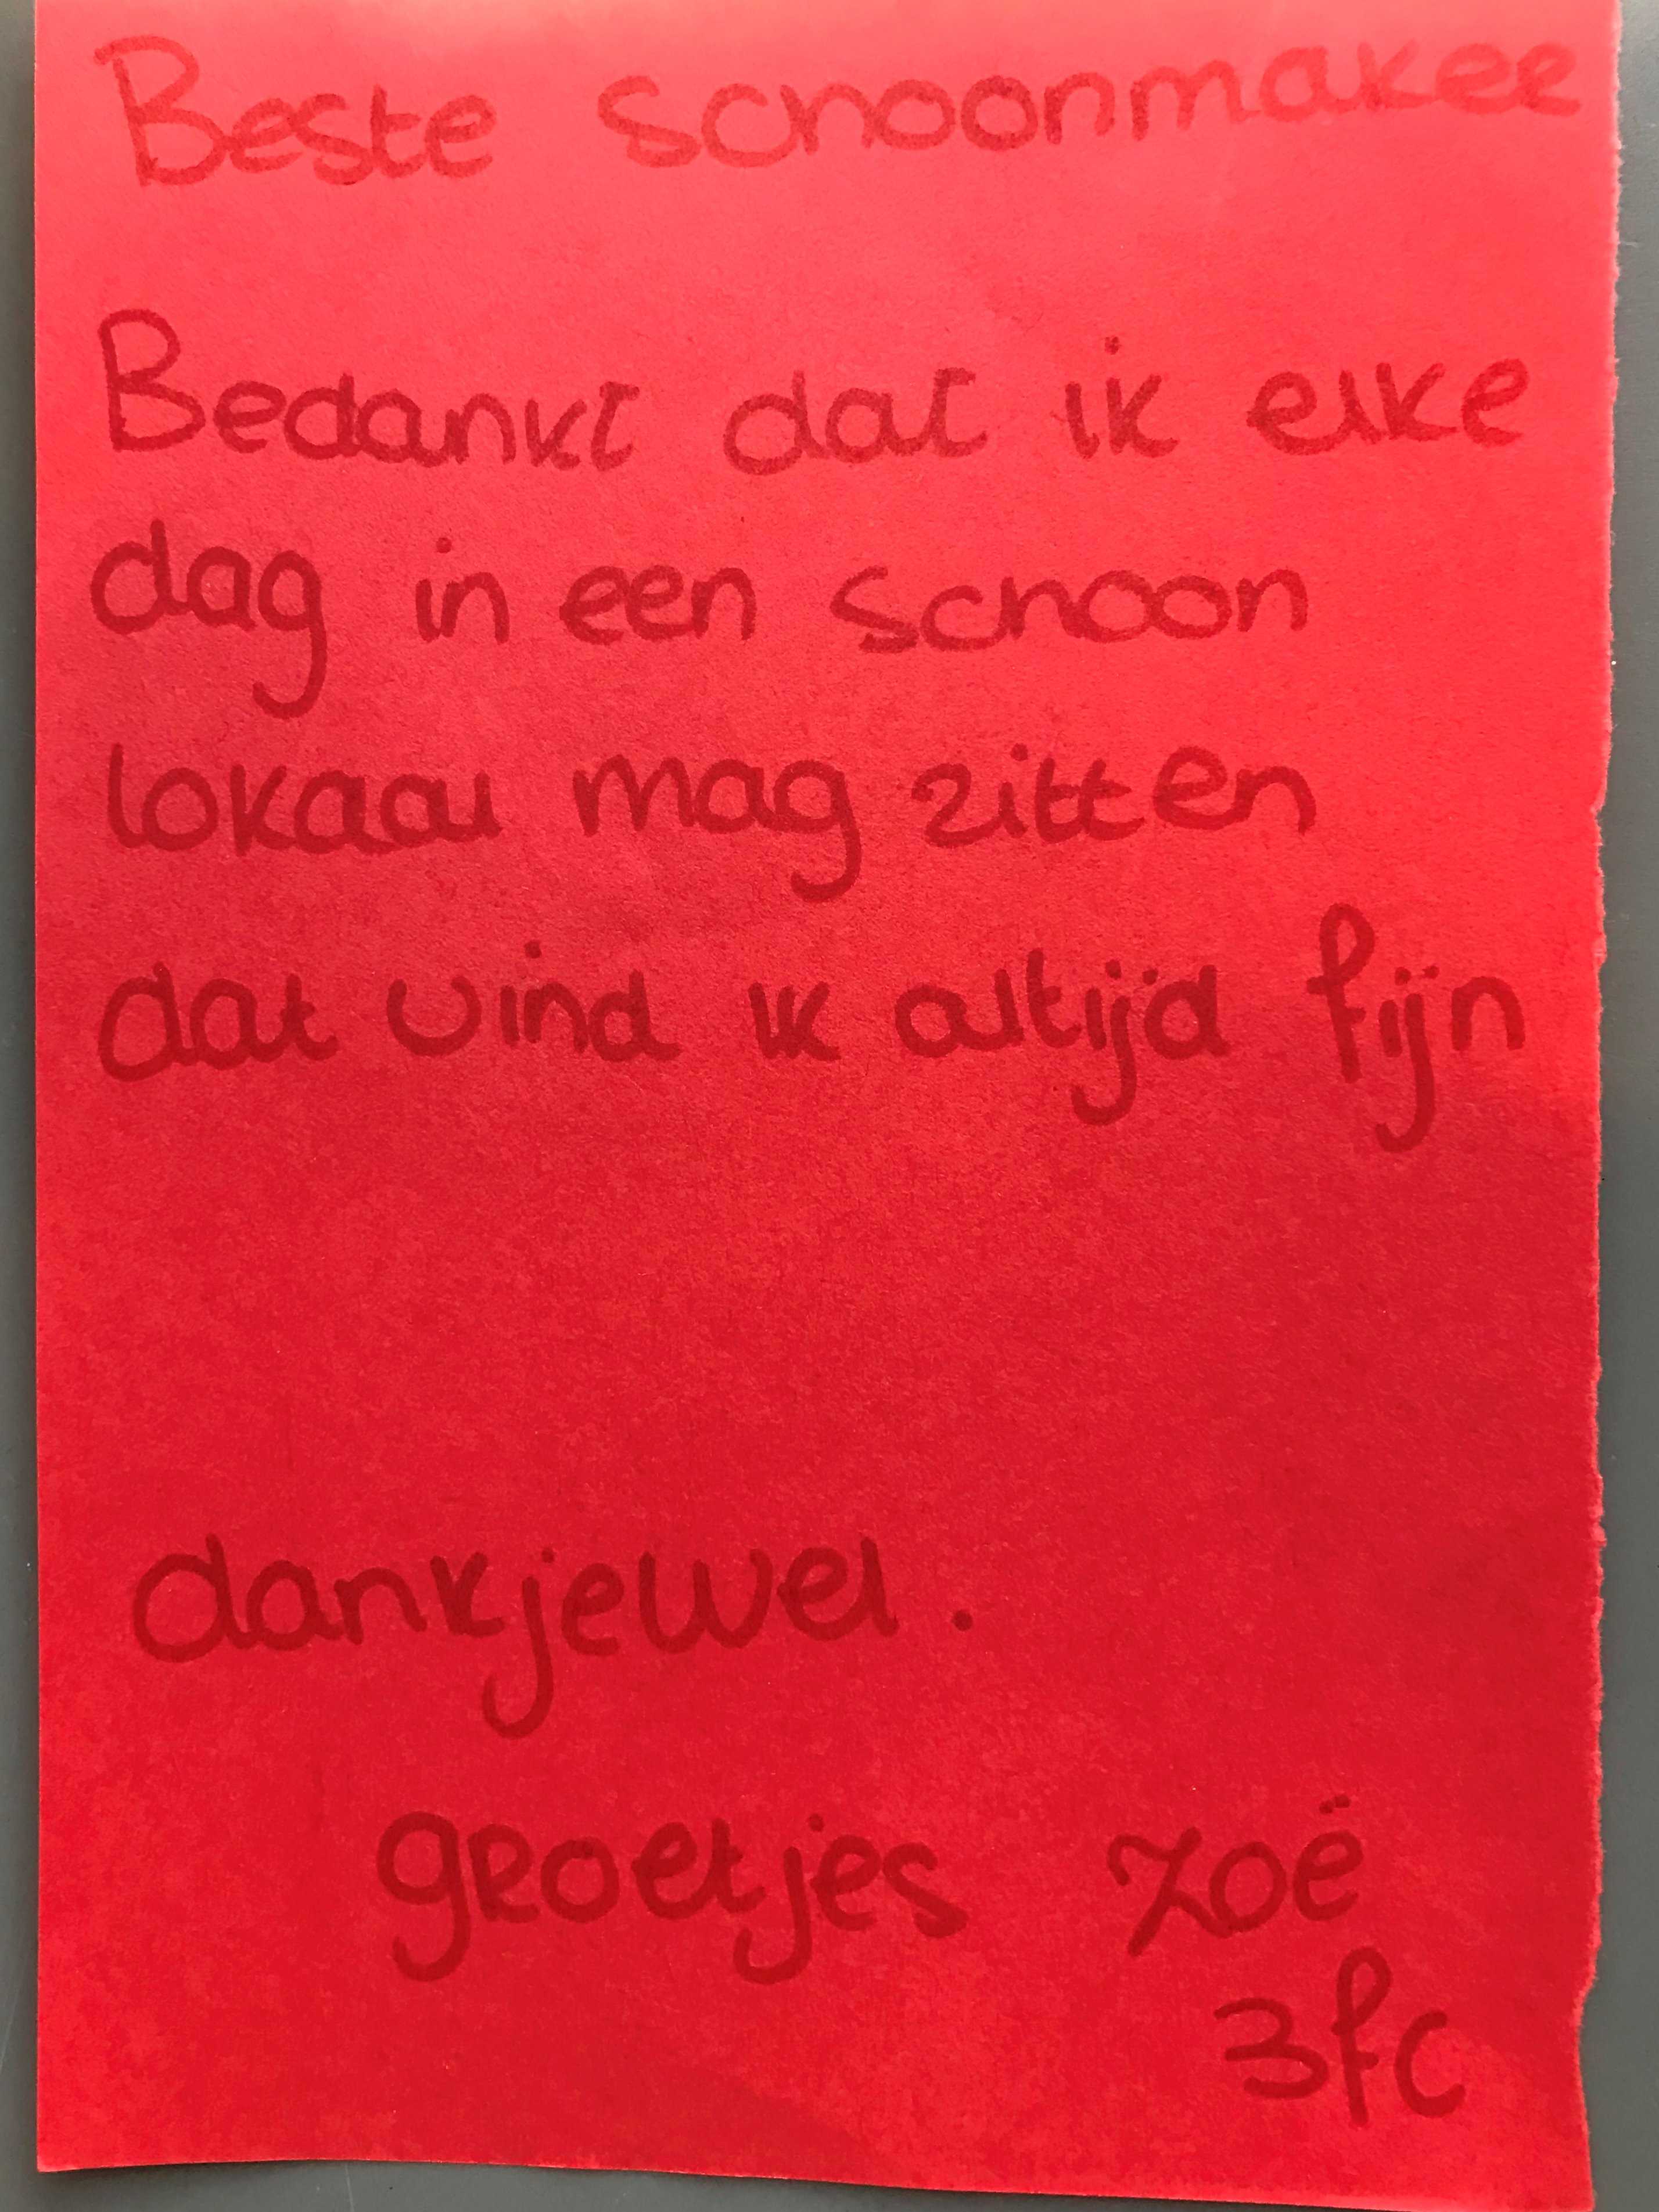 Beste schoonmaker
Bedankt dat ik elke
dag in een schoon
lokaal mag zitten
dat vind ik altijd fijn
dankjewel.
gRoetjes zoë
3fc